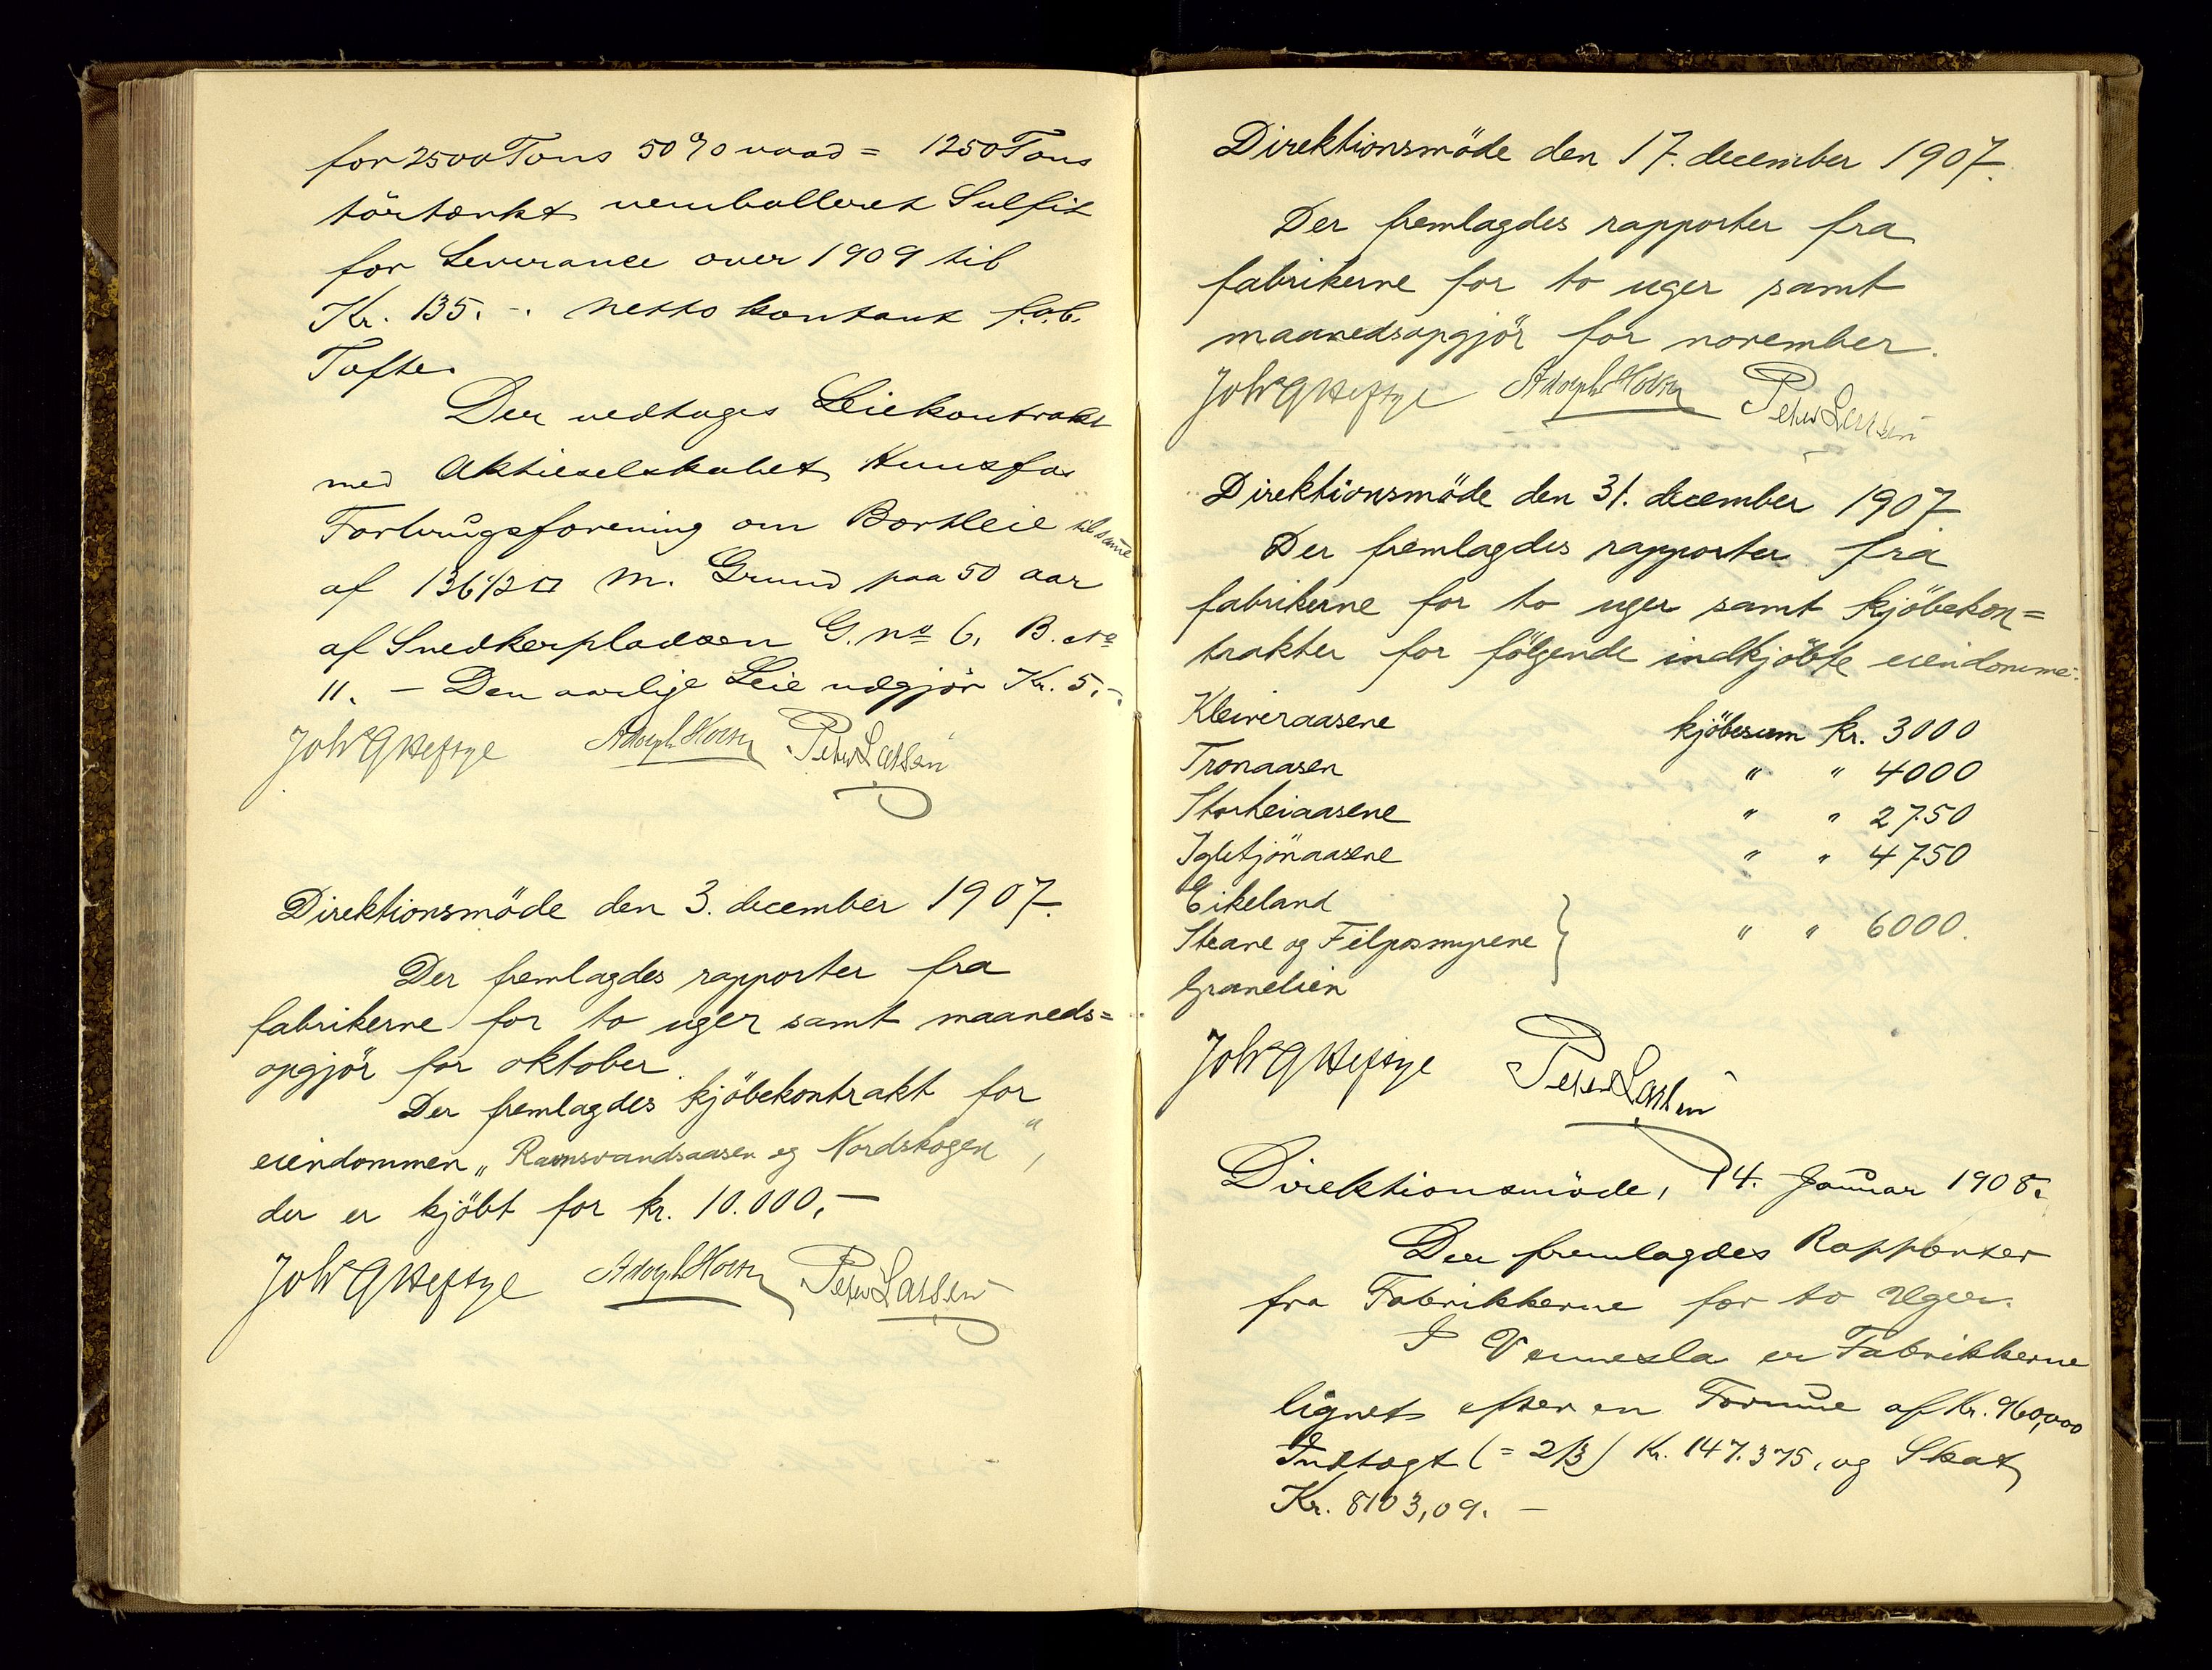 for 2500 Tons 50% vaad = 1250 Tons
törtænkt uemballeret Sulfit
for Leverance over 1909 til
Kr. 135. -. netto kontant f.o.b.
Tofte.
Der vedtoges Leiekontrakt
med Aktieselskabet Hunsfos
Forbrugsforening om Bortleie til samme
af 136 1/2 □ m. Grund paa 50 aar
af Snedkerpladsen G. no 6, B. No
11. - Den aarlige Leie udgjör Kr. 5.-.
Joh's G Heftye Adolph Hoem Peter Larssen
Direktionsmöde den 3. december 1907.
Der fremlagdes rapporter fra
fabrikerne for to uger samt maaneds=
opgjör for oktober.
Der fremlagdes kjöbekontrakt for
eiendommen „Ravnsvandsaasen og Nordskogen",
der er kjöbt for kr. 10.000,-
Joh's G Heftye Adolph Hoem Peter Larssen
Direktionsmöde den 17. december 1907.
Der fremlagdes rapporter fra
fabrikerne for to uger samt
maanedsopgjör for november.
Joh's G Heftye Adolph Hoem Peter Larssen
Direktionsmöde den 31. december 1907
Der fremlagdes rapporter fra
fabrikerne for to uger samt kjöbekon=
trakter for fölgende indkjöbte eiendomme:
Kleiveraasene kjöbesum kr. 3000
Tronaasen " " 4000
Storheiaasene " " 2750
Igletjönaasene " " 4750
Eikeland
Steane og Filposmyrene } " " 6000.
Granelien
Joh's G Heftye Peter Larssen
Direktionsmöde, 14. Januar 1908.
Der fremlagdes Rapporter
fra Fabrikkerne for to Uger.
I Vennesla er Fabrikkerne
lignet efter en Formue af Kr. 960,000
Indtægt (= 2/3) Kr. 147.375, og Skat
Kr. 8103,09. -